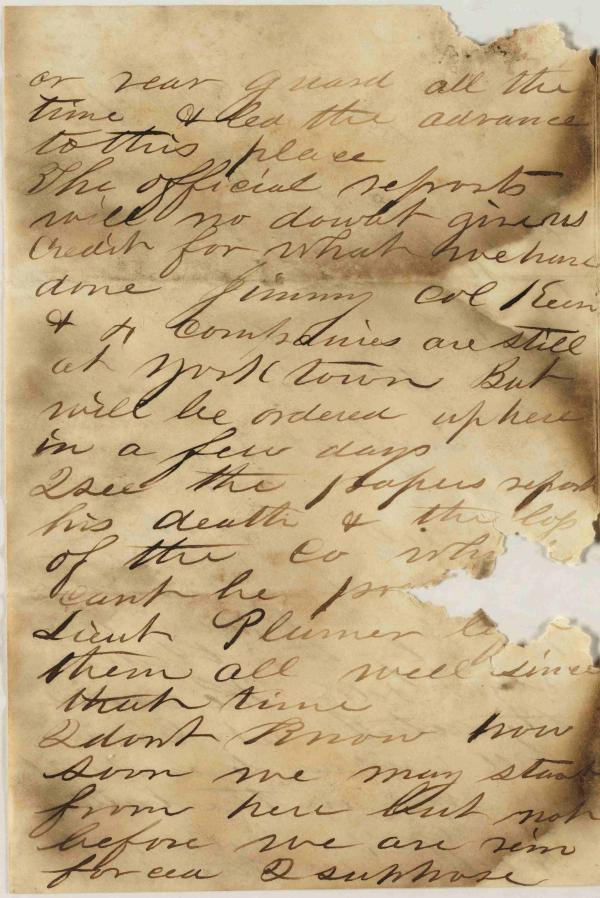 or rear guard all the
time & led the advance
to this place
The official reports
will no dowat give us
Credit for what we have
done Jimmy Col
& 4 Companies are still
at York town But
will be ordered up here
in a few days
I see the papers report
his death & the loss
of the Co
cant be
Lieut Plumer
them all well since
that time
I dont Know how
soon we may start
from here but not
before we are rein
forced I suppose